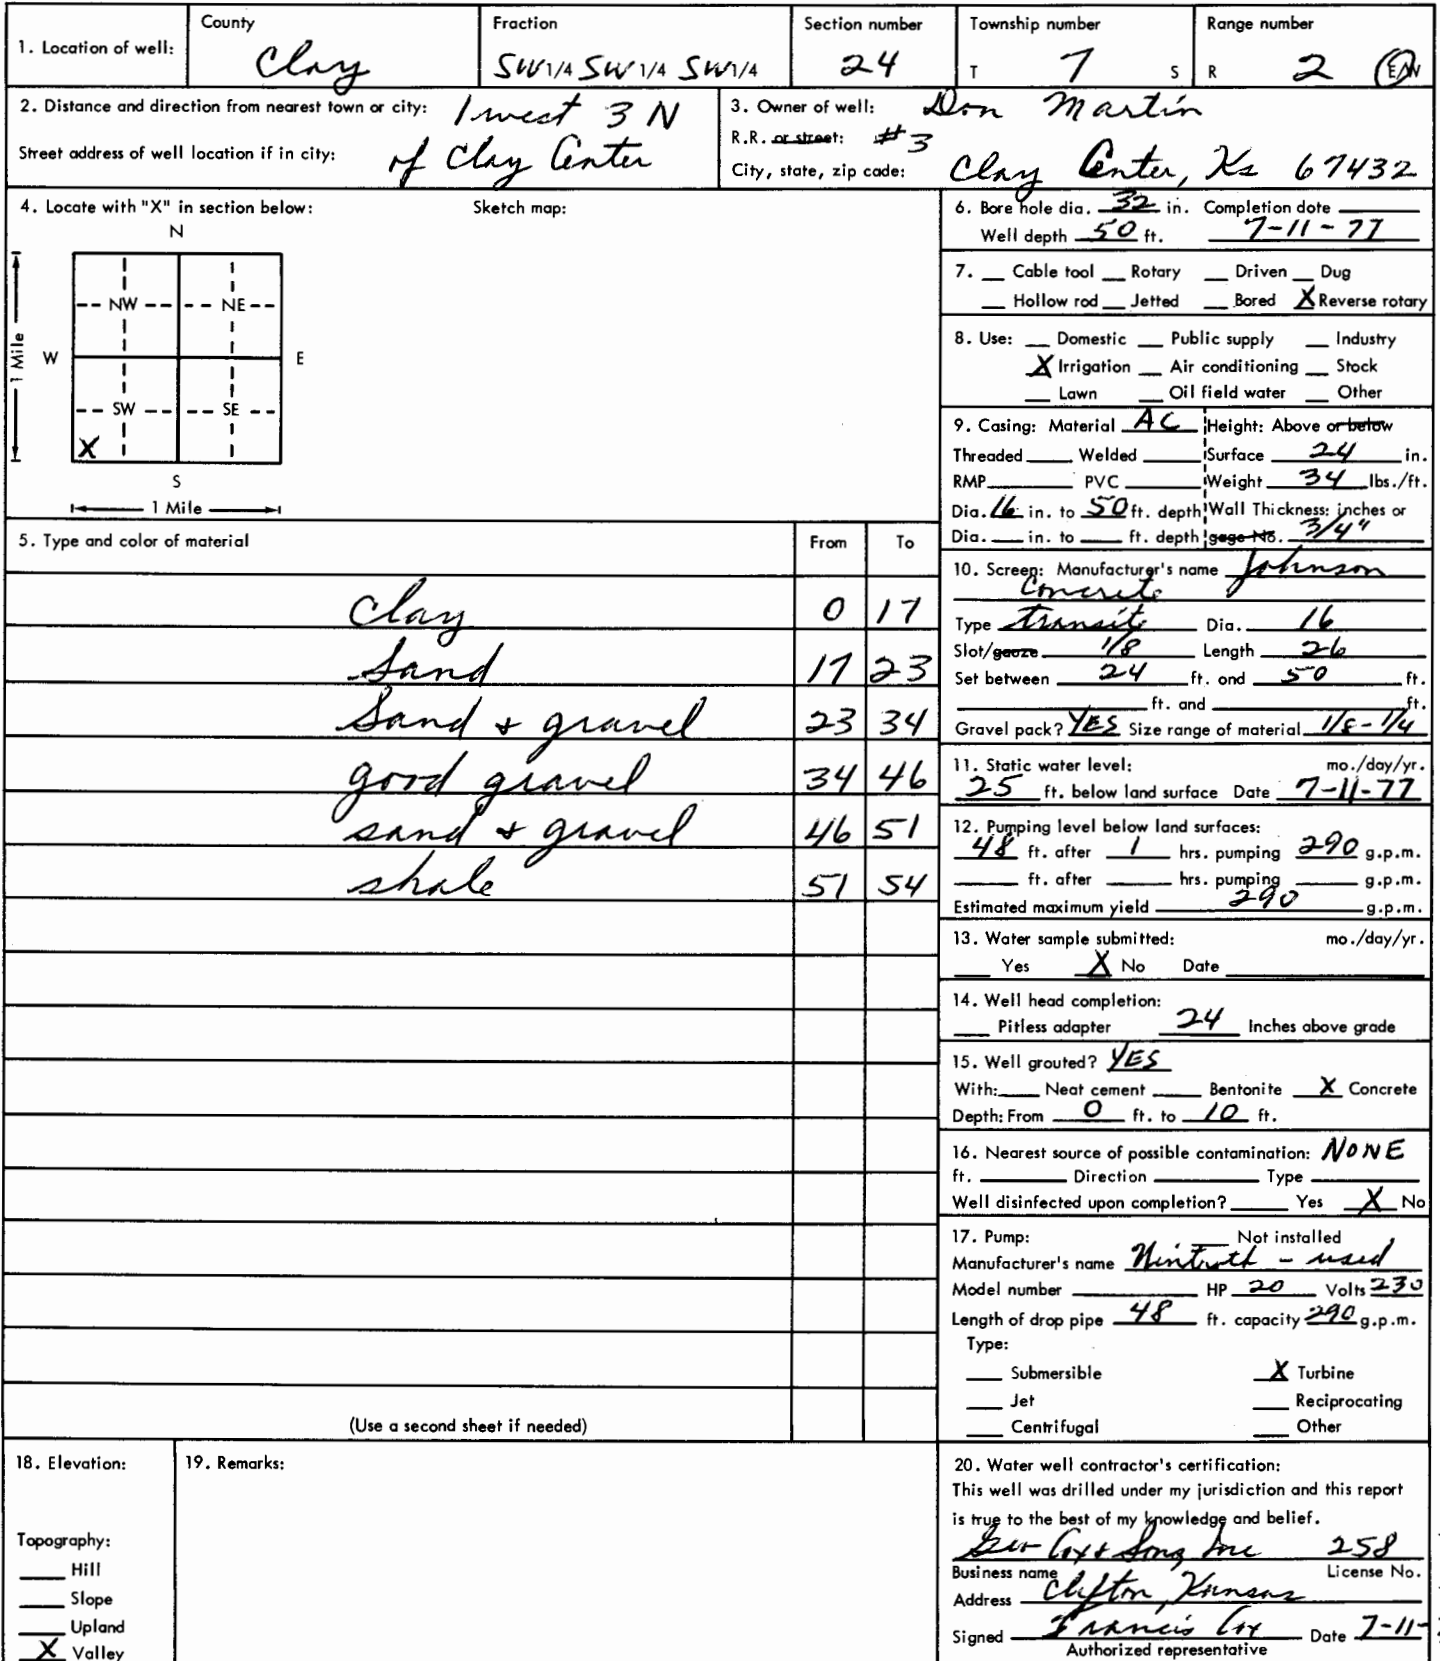 1. Location of well: County Clay Fraction SW 1/4 SW 1/4 SW 1/4 Section number 24 Township number T 7 S Range number R 2 E/W
2. Distance and direction from nearest town or city: 1 west 3 N
Street address of well location if in city: of Clay Center
3. Owner of well: Don Martin
R.R. or street: #3
City, state, zip code: Clay Center, Ks 67432
4. Locate with "X" in section below: Sketch map:
N
NW NE
W E
1 Mile
SW SE
X
S
1 Mile
5. Type and color of material From To
Clay 0 17
Sand 17 23
Sand & gravel 23 34
good gravel 34 46
sand & gravel 46 51
shale 51 54
(Use a second sheet if needed)
6. Bore hole dia. 32 in. Completion date
Well depth 50 ft. 7-11-77
7. Cable tool Rotary Driven Dug
Hollow rod Jetted Bored X Reverse rotary
8. Use: Domestic Public supply Industry
X Irrigation Air conditioning Stock
Lawn Oil field water Other
9. Casing: Material AC Height: Above or below
Threaded Welded Surface 24 in.
RMP PVC Weight 34 lbs./ft.
Dia. 16 in. to 50 ft. depth Wall Thickness: inches or
Dia. in. to ft. depth gage No. 3/4"
10. Screen: Manufacturer's name Johnson
Concrete
Type transit Dia. 16
Slot/gauze 1/8 Length 26
Set between 24 ft. and 50 ft.
ft. and ft.
Gravel pack? YES Size range of material 1/8 - 1/4
11. Static water level: mo./day/yr.
25 ft. below land surface Date 7-11-77
12. Pumping level below land surfaces:
48 ft. after 1 hrs. pumping 290 g.p.m.
ft. after hrs. pumping g.p.m.
Estimated maximum yield 290 g.p.m.
13. Water sample submitted: mo./day/yr.
Yes X No Date
14. Well head completion:
Pitless adapter 24 Inches above grade
15. Well grouted? YES
With: Neat cement Bentonite X Concrete
Depth: From 0 ft. to 10 ft.
16. Nearest source of possible contamination: NONE
ft. Direction Type
Well disinfected upon completion? Yes X No
17. Pump: Not installed
Manufacturer's name - used
Model number HP 20 Volts 230
Length of drop pipe 48 ft. capacity 290 g.p.m.
Type:
Submersible X Turbine
Jet Reciprocating
Centrifugal Other
18. Elevation:
Topography:
Hill
Slope
Upland
X Valley
19. Remarks:
20. Water well contractor's certification:
This well was drilled under my jurisdiction and this report
is true to the best of my knowledge and belief.
Geo Cox & Sons, Inc 258
Business name License No.
Address Clifton, Kansas
Signed Francis Cox Date 7-11-
Authorized representative